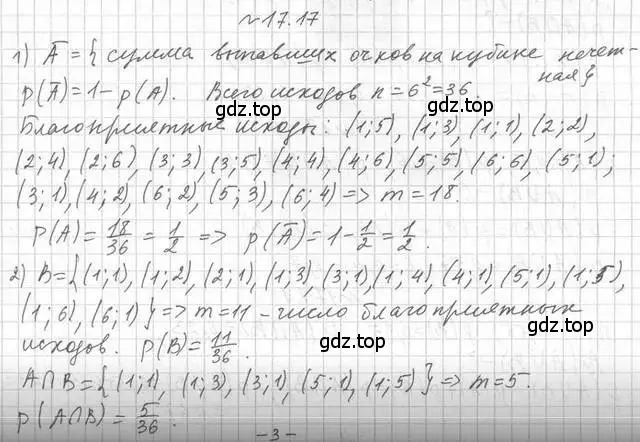 №17.17
1) A̅ = { сумма выпавших очков на кубике нечет-
ная}
p(A̅) = 1 - p(A). Всего исходов n = 6² = 36.
gdz.top gdz.top
Благоприятные исходы: (1;5), (1;3), (1;1), (2;2),
(2;4), (2;6), (3;3), (3;5), (4;4), (4;6), (5;5), (6;6), (5;1);
(3;1), (4;2), (6;2), (5;3), (6;4) => m = 18.
P(A) = 18/36 = 1/2 => p(A̅) = 1 - 1/2 = 1/2.
gdz.top gdz.top
2) B = { (1;1), (1;2), (2;1), (1;3), (3;1), (1;4), (4;1), (5;1), (1;5),
(1;6), (6;1) } => m = 11 - число благоприятных
gdz.top
исходов. P(B) = 11/36.
gdz.top
A∩B = { (1;1), (1;3), (3;1), (5;1), (1;5) } => m = 5.
p(A∩B) = 5/36.
gdz.top gdz.top
- 3 -